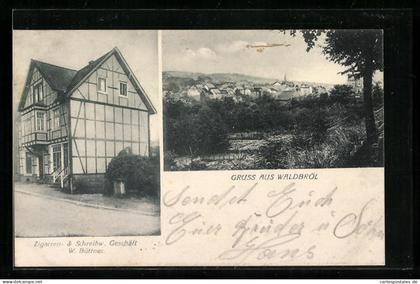 GRUSS AUS WALDBRÖL
Sendet Euch
Euer Bruder u
Hans.
Zigarren- & Schreibw. Geschäft
W. Büttner.